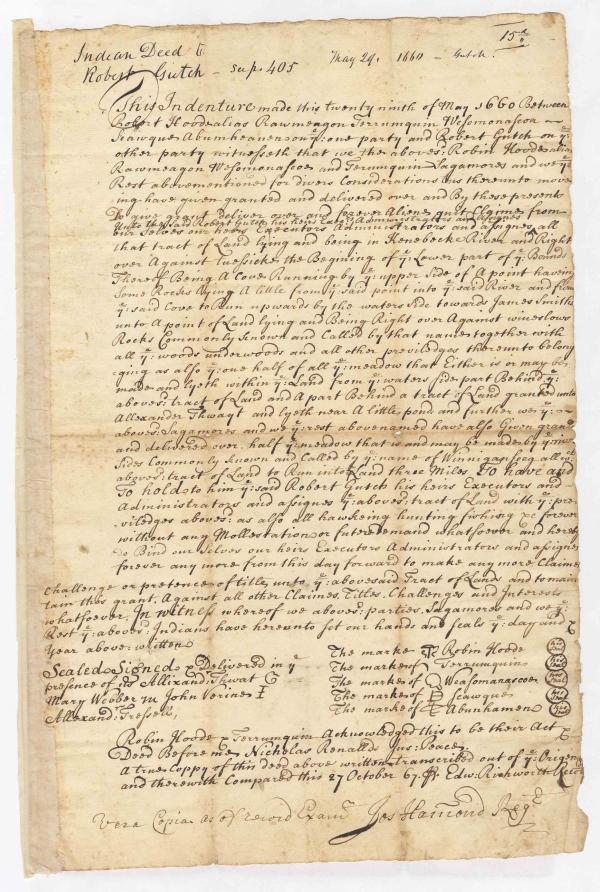 15
Indian Deed to
Robert Gutch - Sup. 405 May 29. 1660 - Gutch.
This Indenture made this twenty ninth of May 1660 Between
Robert Hoode alias Rawmeagon Terrumquin Wesomonascoa
Scawque Abumheamen on ye: one party and Robert Gutch on ye:
other party witnesseth that we the aboves: Robin Hoode alias
Rawmeagon Wesomonascoe and Terrumquin Sagamores and we ye:
Rest abovementioned for divers Considerations us thereunto move
ing have given granted and delivered over and By these presents
Do give grant Deliver over and forever Aliene quit Claime from
Unto the said Robert Gutch his heirs Executors Administrators and assignes
our selves our heirs Executors Administrators and assignes all
that tract of Land lying and being in Kenebecke River and Right
over Against Tuessicke the Begining of ye: Lower part of ye: Bounds
Thereof Being A Cove Running by ye: upper side of A point having
Some Rocks lying A little from ye: said point into ye: said River and from
ye: said Cove to Run upwards by the waters side towards James Smiths
unto A point of Land lying and Being Right over Against winslows
Rocks Commonly Known and Called by that name together with
all ye: woods underwoods and all other previledges thereunto belong
ging as also ye: one half of all ye: meadow that Either is or may be
made and lyeth within ye: Land from ye: waters side part Behind ye:
aboves: tract of Land and A part Behind a tract of Land granted unto
Allexander Thwayt and lyeth near A little pond and further we ye:
aboves: Sagamores and we ye: rest abovenamed have also Given grant
and delivered over half ye: meadow that is and may be made by ye:
Sides Commonly Known and Called by ye: name of Winnigansceg all
aboves: tract of Land to Run into Land three Miles To have and
To hold to him ye: said Robert Gutch his heirs Executors and
Administrators and assignes ye: aboves: tract of Land with ye: pre
viledges aboves: as also all hawkeing hunting fishing &c forever
without any Mollestation or future demand whatsoever and hereby
do Bind our selves our heirs Executors Administrators and assignes
forever any more from this day forward to make any more Claime
Challenge or pretence of title unto ye: abovesaid Tract of Lands and to main
tain this grant Against all other Claimes Titles Challenges and Interests
whatsoever, In witness whereof we aboves: parties Sagamores and we ye:
Rest ye: aboves: Indians have hereunto set our hands and seals ye: day and
Year above: written
Sealed Signed & Delivered in ye
presence of us Allixand: Thwat
Mary Webber John Verine
Allexand: Tressell,
The marke Robin Hoode
The marke of Terrumquin
The marke of Weasomanascoe
The marke of Scawque
The marke of Abunhamen
Robin Hoode & Terrumquin Acknowledged this to be their Act &
Deed Before me Nicholas Renallds Jus: Peace
A true Coppy of this deed above written transcribed out of ye: Origin
and therewith Compared this 27 October 67. Edw: Rishworth Recor
Vera Copia as of record Exam
Jos Hamond Regr